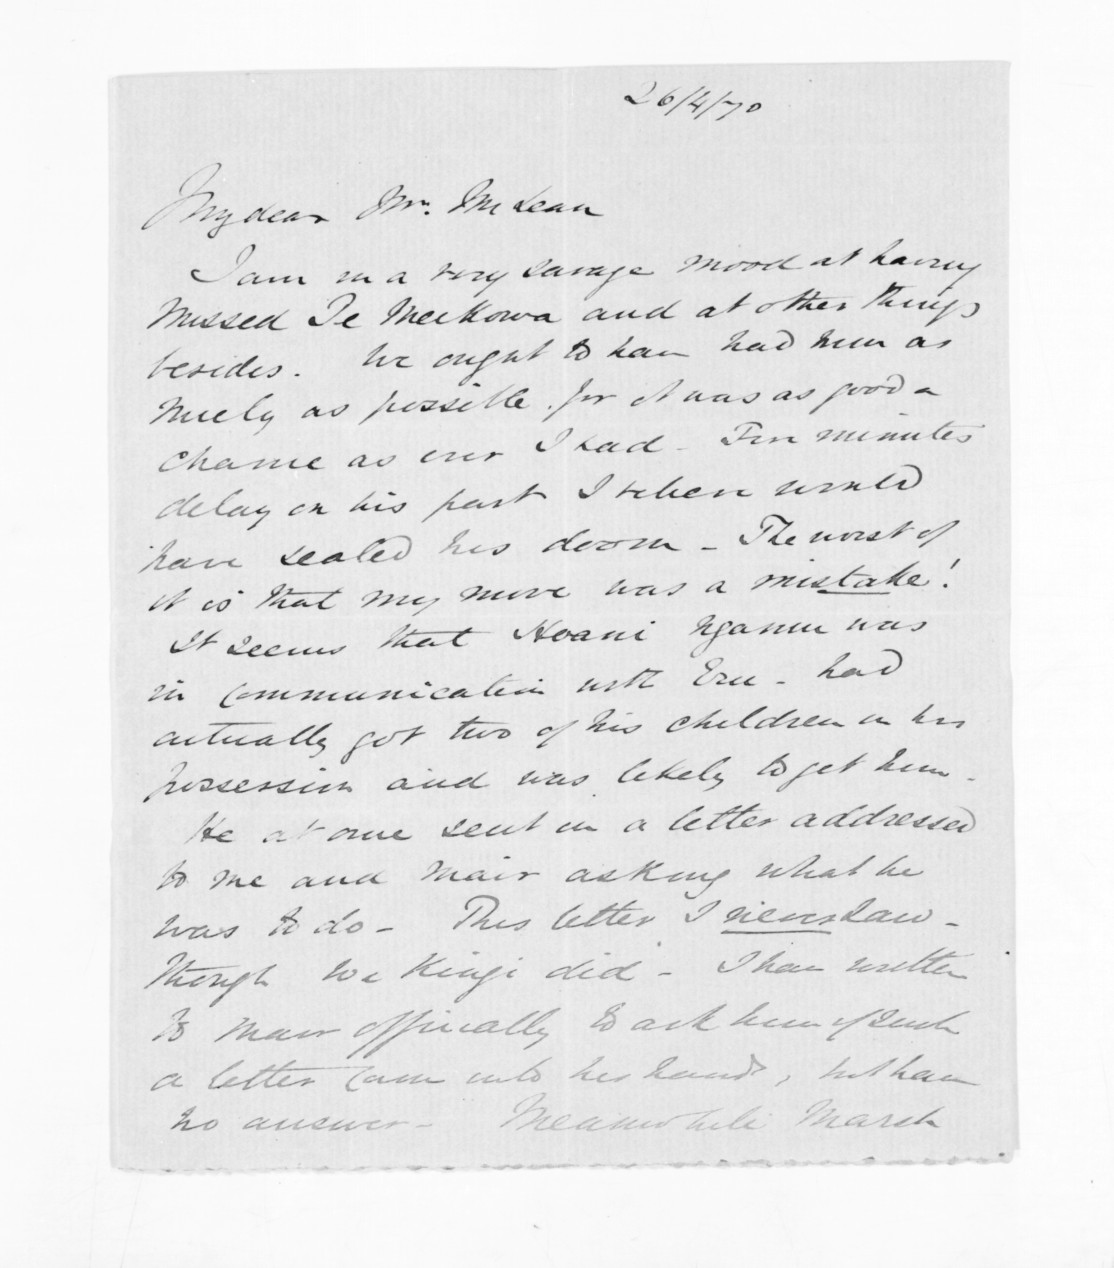 26/4/70
My dear Mr. McLean
I am in a very savage mood at having
missed Te Meekowa and at other things
besides. We ought to have had him as
nicely as possible for it was as good a
chance as ever I had - Five minutes
delay on his part I believe would
have sealed his doom - The worst of
it is that my move was a mistake!
It seems that Hoani Ngamu was
in communication with Eru - had
actually got two of his children in his
possession and was likely to get him -
He at once sent in a letter addressed
to me and Mair asking what he
was to do - This letter I never saw -
though We Kingi did - I have written
to Mair officially to ask him if such
a letter came into his hands, but have
no answer - Meanwhile March